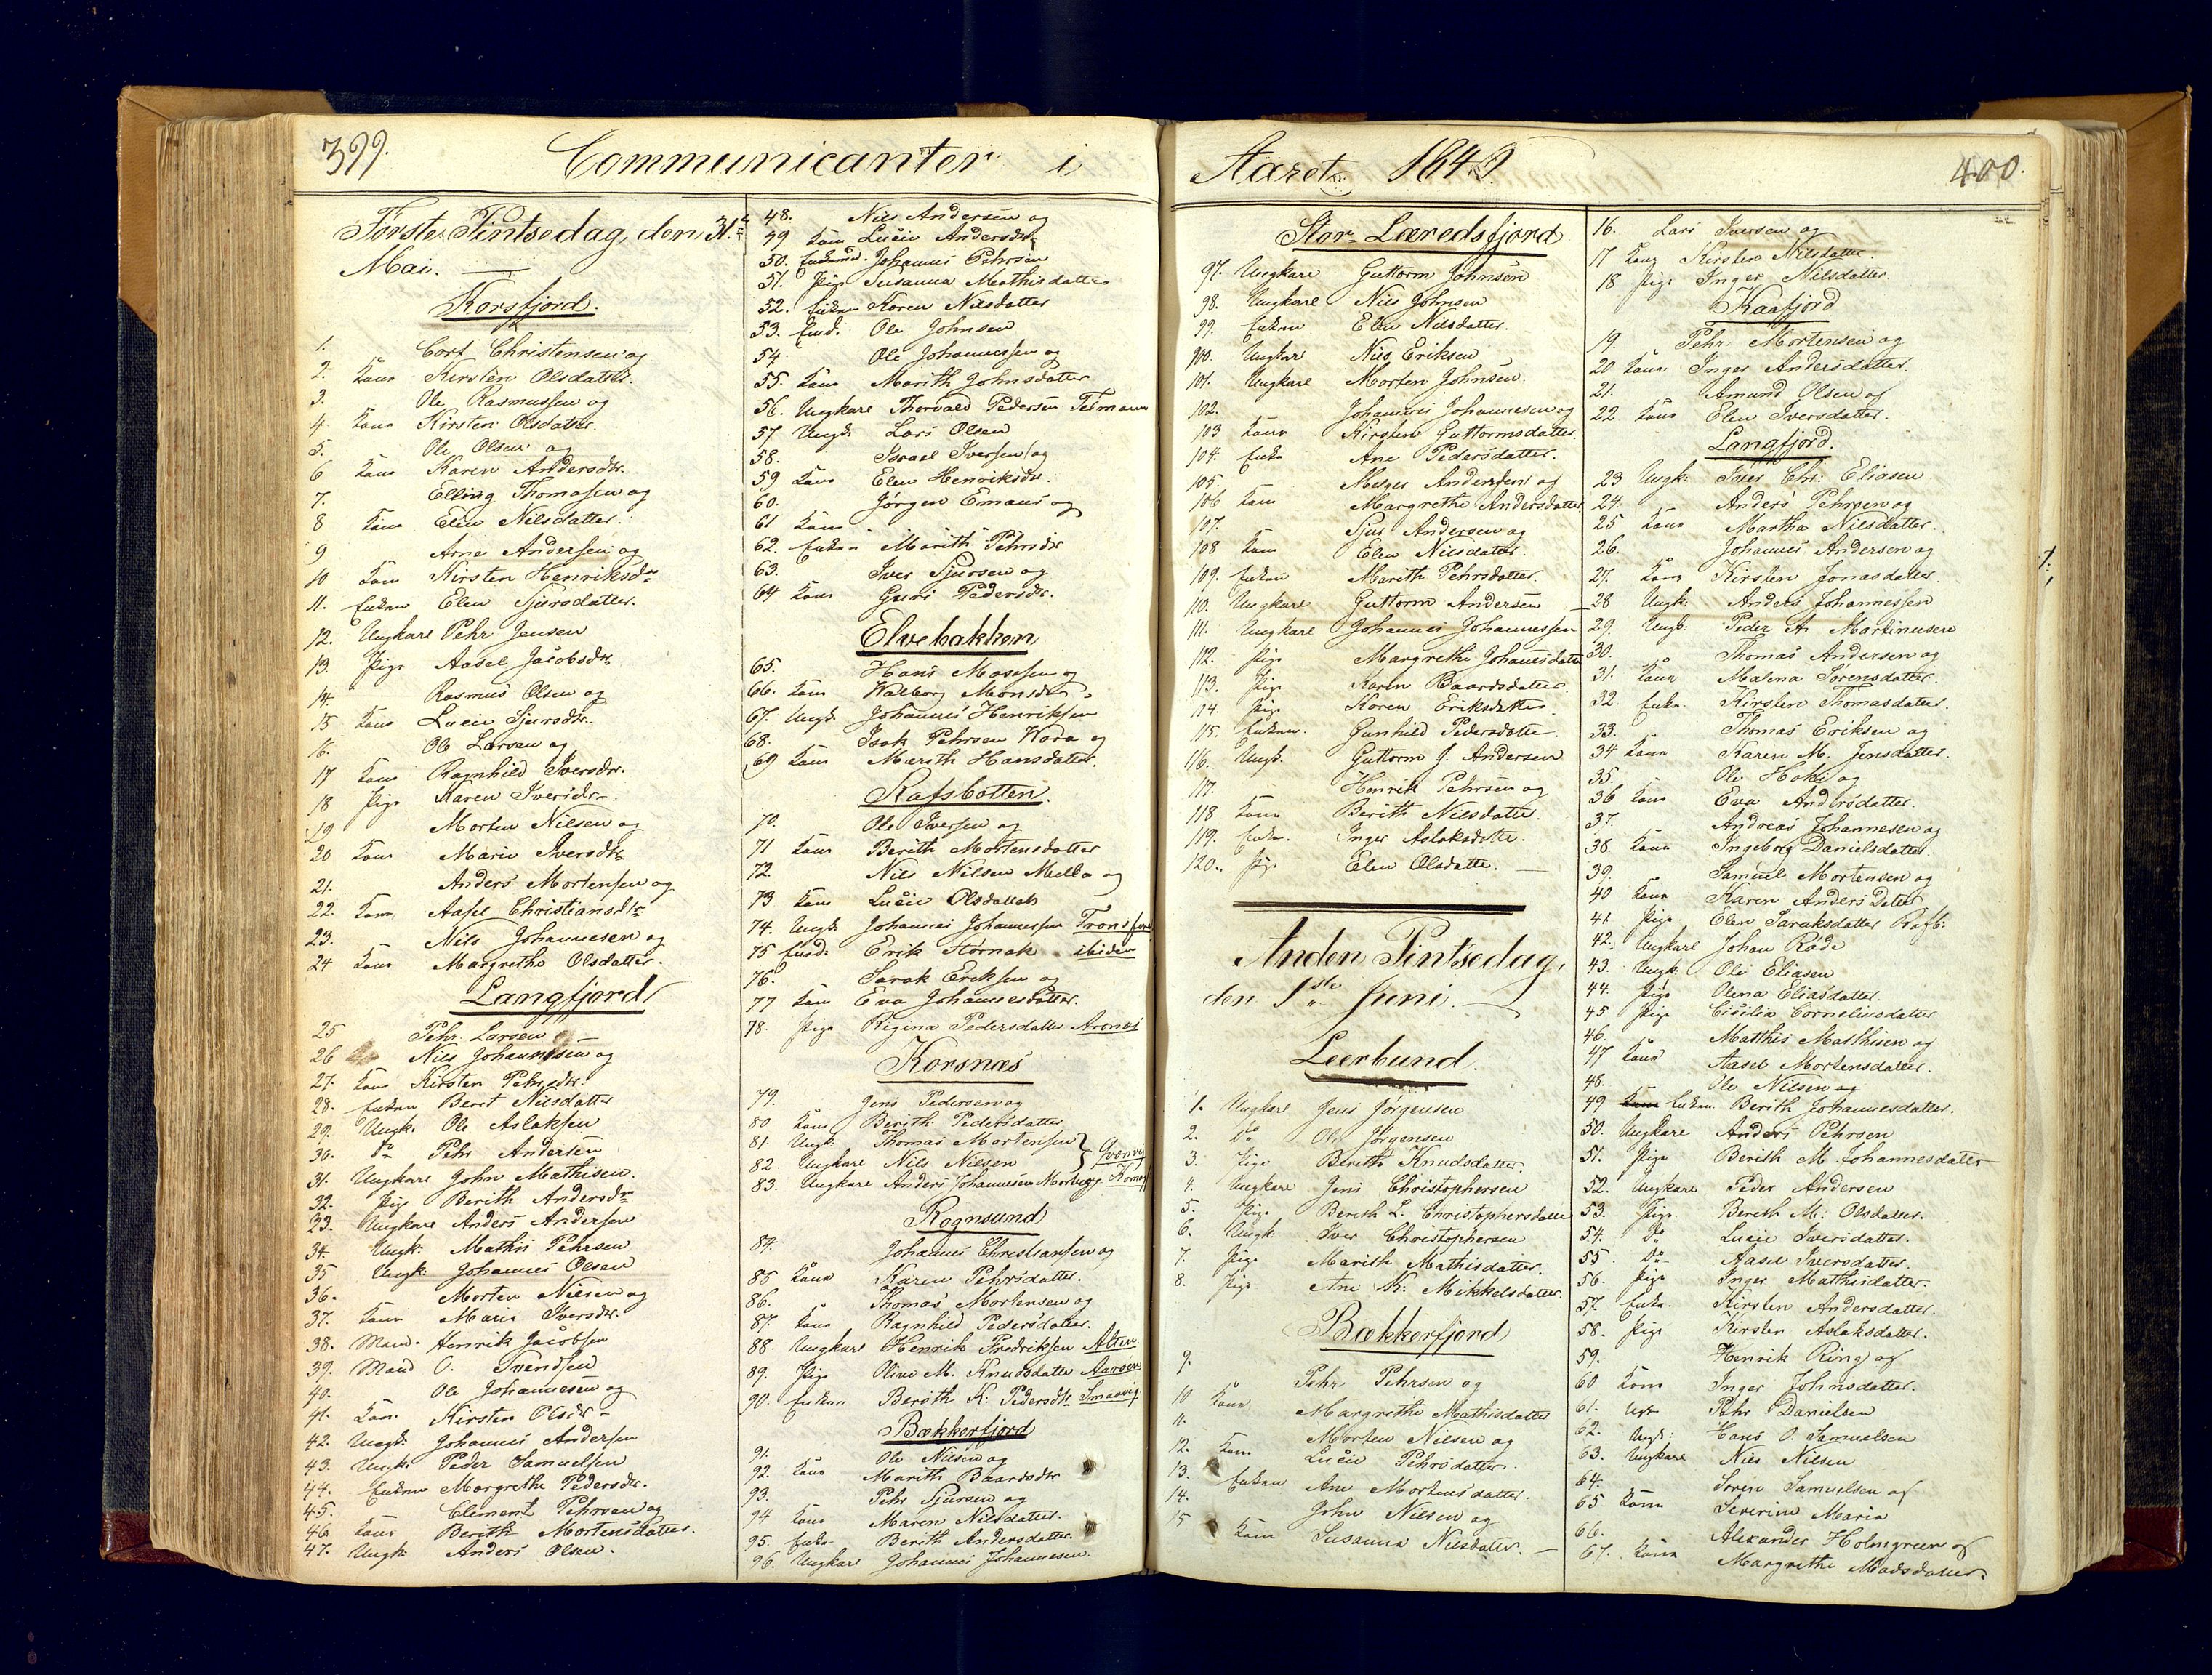 399.
Communicanter i
Første Pintsedag, den 31te
Mai.
Korsfjord.
1. Cort Christensen og
2. Kone Kirsten Olsdatter.
3. Ole Rasmussen og
4. Kone Kirsten Olsdatter.
5. Ole Olsen og
6 Kone Karen Andersdtr.
7. Elling Thomasen og
8 Kone Elen Nilsdatter.
9 Arne Andersen og
10 Kone Kirsten Henriksdtr
11. Enken Elen Sjursdatter.
12. Ungkarl Pehr Jensen
13. Pige Aasel Jacobsdtr
14. Rasmus Olsen og
15 Kone Lucie Sjursdtr.
16. Ole Larsen og
17 Kone Ragnhild Iversdtr.
18 Pige Karen Iversdtr.
19 Morten Nilsen og
20 Kone Marie Iversdtr
21. Anders Mortensen og
22. Kone Aasel Christiansdtr
23. Nils Johannesen og
24 Kone Margrethe Olsdatter.
Langfjord
25 Pehr Larsen
26 Nils Johannesen og
27. Kone Kirsten Pehrsdtr.
28. Enken Beret Nilsdatter
29. Ungk. Ole Aslaksen
30. Do Pehr Andersen
31. Ungkarl John Mathisen.
32. Pig Berith Andersdtr
33. Ungkarl Anders Andersen
34. Ungk: Mathis Pehrsen
35 Ungk: Johannes Olsen
36. Morten Nilsen og
37. Kone Marie Iversdtr.
38. Mand. Henrik Jacobsen
39. Mand O. Svendsen
40. Ole Johannesen og
41. Kone Kirsten Olsdtr.
42. Ungk: Johannes Andersen
43. Ungk: Peder Samuelsen
44. Enken Margrethe Pedersdtr.
45. Clement Pehrsen og
46 Kone Berith Mortensdatter.
47. Ungk: Anders Olsen.
48. Nils Andersen og
49 Kone Lucie Andersdtr
50. Enkemd. Johannes Pehrsen
51. Pige Susanna Mathisdatter
52. Enken Karen Nilsdatter
53. Emd. Ole Johnsen
54. Ole Johannessen og
55. Kone Marith Johnsdatter
56. Ungkarl Thorvald Pedersen
57 Ungk: Lars Olsen
58. Israel Iversen og
59 Kone Elen Henriksdtr.
60. Jørgen Emaus og
61 Kone
62. Enken Marith Pehrsdtr
63. Iver Sjursen og
64 Kone Guri Pedersdtr.
Elvebakken
65. Hans Mosesen og
66. Kone Walborg Monsdtr.
67. Ungk. Johannes Henriksen
68. Isak Pehrsen Wara og
69 Kone Marith Hansdatter.
Rafsbotten.
70. Ole Iversen og
71 Kone Berith Mortensdatter
72. Nils Nilsen Mella og
73 Kone Lucie Olsdatter
74. Ungk. Johannes Johannessen
75 Emd: Erik Hornak ibidem
76. Sarak Eriksen og
77 Kone Eva Johannesdatter.
78. Pige Regina Pedersdatter Aronæs
Korsnæs
79. Jens Pedersen og
80 Kone Berith Pedersdatter
81. Ungk: Thomas Mortensen
82. Ungkarl Nils Nilsen
83. Ungkarl Anders Johannesen
Rognsund
84. Johannes Christiansen og
85 Kone Karen Pehrsdatter.
86. Thomas Mortensen og
87. Kone Ragnhild Pedersdatter.
88. Ungkarl Henrik Fredriksen Alten
89. Pige Oline M. Knudsdatter
90. Enken Berith K: Pedersdtr Smaavig
Bækkerfjord
91. Ole Nilsen og
92. Kone Marith Baardsdtr
93. Pehr Sjursen og
94 Kone Maren Nilsdatter.
95. Enke Berith Andersdatter.
96. Ungkarl Johannes Johannesen.
Aaret 1849
400.
Stor-Læredsfjord
97. Ungkarl Guttorm Johnsen
98. Ungkarl Nils Johnsen
99. Enken Elen Nilsdatter.
100. Ungkarl Nils Eriksen
101. Ungkarl Morten Johnsen.
102. Johannes Johannesen og
103 Kone Kirsten Guttormsdatter.
104. Enke Ane Pedersdatter.
105. Andersen og
106 Kone Margrethe Andersdatter
107. Sjus Andersen og
108 Kone Elen Nilsdatter.
109. Enken Marith Pehrsdatter.
110. Ungkarl Guttorm Andersen
111. Ungkarl Johannes Johannessen
112. Pige Margrethe Johannesdatter
113. Pige Karen Baardsdatter.
114. Pige Karen Eriksdatter
115. Enken. Gunhild Pedersdatter.
116. Ungk. Guttorm J. Andersen
117. Henrik Pehrsen og
118 Kone Berith Nilsdatter.
119. Enken. Inger Aslaksdatter.
120. Pige Elen Olsdatter.
Anden Pintsedag,
den 1ste Juni.
Leerbund.
1. Ungkarl Jens Jørgensen
2. Do Ole Jørgensen
3. Pige Berith Knudsdatter.
4. Ungkarl Jens Christophersen
5. Pige Bereth L. Christophersdatter
6. Ungk: Iver Christophersen
7. Pige Marith Mathisdatter.
8. Pige Ane K. Mikkelsdatter.
Bækkerfjord
9. Pehr Pehrsen og
10 Kone Margrethe Mathisdatter
11. Morten Nilsen og
12. Kone Lucie Pehrsdatter.
13. Enken Ane Mortensdatter.
14. John Nilsen og
15 Kone Susanna Nilsdatter.
16. Lars Iversen og
17 Kone Kirsten Nilsdatter.
18 Pige Inger Nilsdatter.
Kaafjord
19. Pehr Mortensen og
20 Kone Inger Andersdatter.
21. Amund Olsen og
22 Kone Elen Iversdatter.
Langfjord.
23 Ungk: Chr: Eliasen
24. Anders Pehrsen og
25 Kone Martha Nilsdatter.
26. Johannes Andersen og
27. Kone Kirsten Jonasdatter.
28 Ungk: Anders Johannessen
29. Ungk: Peder A. Martinusen
30. Thomas Andersen og
31. Kone Malena Sørensdatter.
32. Enke. Kirsten Thomasdatter.
33. Thomas Eriksen og
34 Kone Karen M. Jensdatter.
35. Ole Hoki og
36 Kone Eva Andersdatter.
37 Andreas Johannesen og
38. Kone Ingeborg Danielsdatter
39. Samuel Mortensen og
40 Kone Karen Anders Datter
41. Pige Elen Saraksdatter Rafb:
42. Ungkarl Johan Råde
43. Ungk. Ole Eliasen
44. Pige Olena Eliasdatter.
45 Pige Cicilia Corneliusdatter
46. Matthis Mathisen og
47 Kone Aasel Mortensdatter.
48. Ole Nilsen og
49 Kone Enken. Berith Johannesdatter.
50. Ungkarl Anders Pehrsen
51. Pige Berith M. Johannesdatter
52. Ungkarl Peder Andersen
53. Pige Bereth M: Olsdatter.
54. Do Lucie Iversdatter.
55 Do Aasel Iversdatter.
56. Pige Inger Mathisdatter.
57. Enke. Kirsten Andersdatter.
58. Pige Kirsten Aslaksdatter.
59. Henrik Ring og
60 Kone Inger Johnsdatter.
61. Ungk Pehr Danielsen
62. Ungk: Hans O. Samuelsen
63. Ungkarl Nils Nilsen
64. Søren Samuelsen og
65 Kone Severine Maria
66. Alexander Holmgreen og
67. Kone Margrethe Madsdatter.